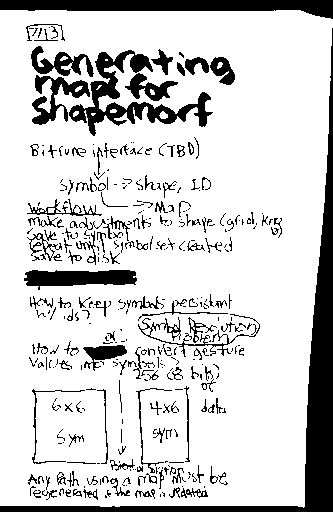 7/13
Generating
maps for
shapemorf
Bitrune interface (TBD)
symbol -> shape, ID
-> Map
Workflow
make adjustments to shape (grid,
save to symbol
repeat until symbolset created
save to disk
How to keep symbols persistant
w/ ids?
Symbol Resolution
Problem
or:
How to convert gesture
Values into symbols?
256 (8 bits)
of
data
6x6
sym
4x6
sym
Potential Solution
Any Path using a map must be
regenerated if the map is updated